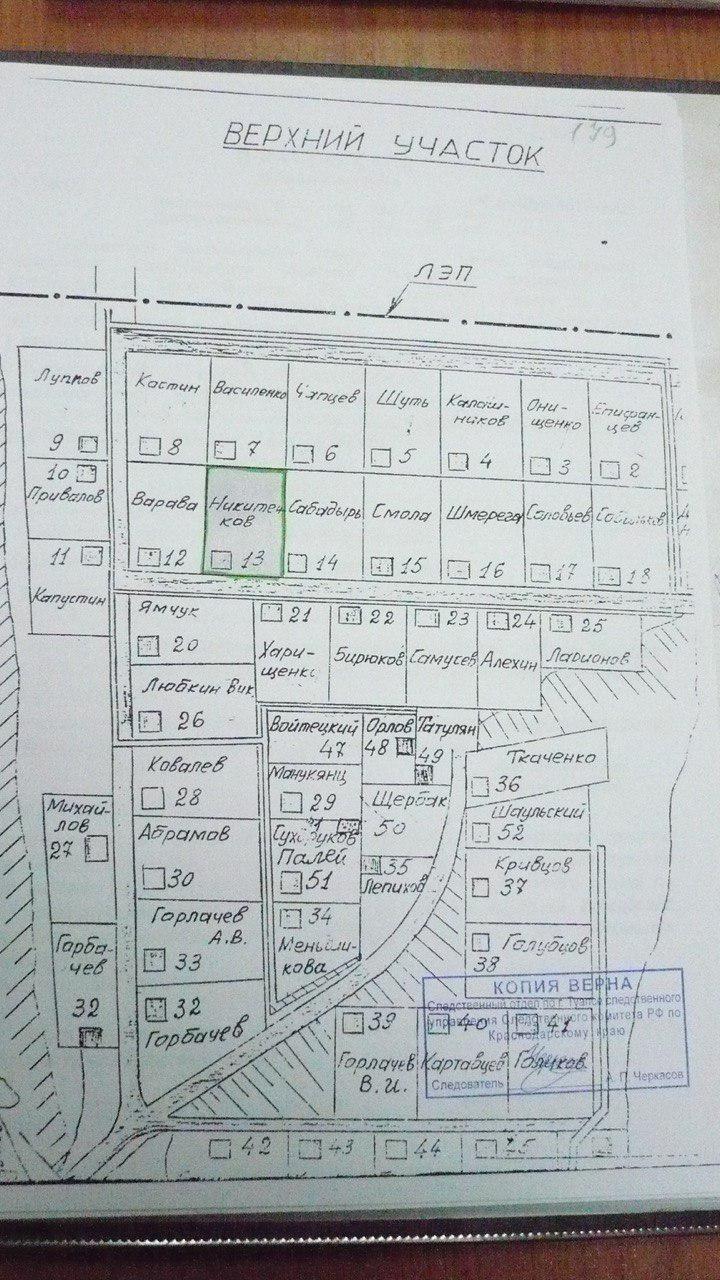 179
ВЕРХНИЙ УЧАСТОК
ЛЭП
Лупков
9
10
Привалов
11
Капустин
Костин
8
Василенко
7
Чапцев
6
Шуть
5
Калаш-
ников
4
Они-
щенко
3
Епифан-
цев
2
Варава
12
Никитен
ков
13
Сабадырь
14
Смола
15
Шмерега
16
Соловьев
17
18
Ямчук
20
21
Хари-
щенко
22
Бирюков
23
Самусев
24
Алехин
25
Ларионов
Любкин Вик
26
Войтецкий
47
Орлов
48
Татулян
49
Ковалев
28
Манукянц
29
Щербак
50
Ткаченко
36
Михай-
лов
27
Абрамов
30
Сухоруков
Палей
51
35
Лепихов
Шаульский
52
Кривцов
37
Горлачев
А.В.
33
34
Меньши-
кова
Голубцов
38
Горба-
чев
32
32
Горбачев
39
Горлачев
В.И.
40
Картавцев
41
Голиков
КОПИЯ ВЕРНА
Следственный отдел по г. Туапсе следственного
управления Следственного комитета РФ по
Краснодарскому краю
Следователь А. П. Черкасов
42
43
44
45